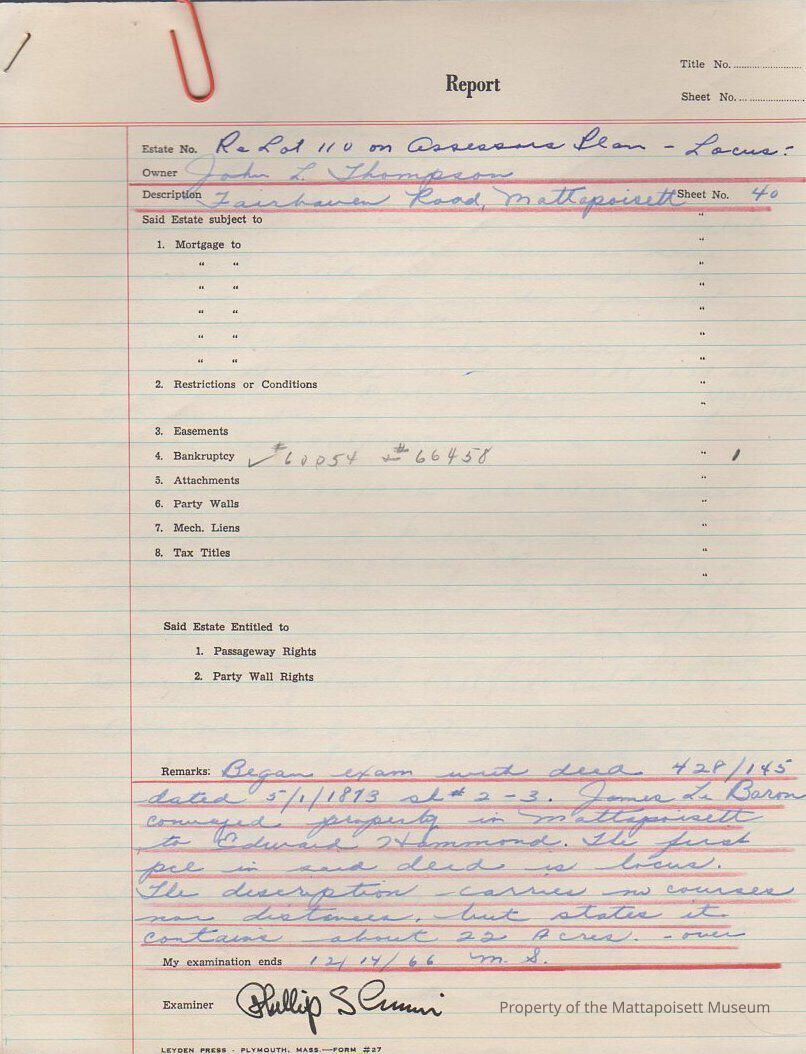 Report
Title No. ........................
Sheet No. ........................
Estate No. Re Lot 110 on Assessors Plan - Locus:-
Owner John L. Thompson
Description Fairhaven Road, Mattapoisett Sheet No. 40
Said Estate subject to "
1. Mortgage to "
" " "
" " "
" " "
" " "
" " "
2. Restrictions or Conditions "
"
3. Easements
4. Bankruptcy ✓ #60054 #66458 " 1
5. Attachments "
6. Party Walls "
7. Mech. Liens "
8. Tax Titles "
"
Said Estate Entitled to
1. Passageway Rights
2. Party Wall Rights
Remarks: Began exam with deed 428/145
dated 5/1/1873 sh# 2-3. James Le Baron
conveyed property in Mattapoisett
to Edward Hammond. The first
pcl in said deed is locus.
The description carries no courses
nor distances, but states it
contains about 22 Acres. - over
My examination ends 12/14/66 M. S.
Examiner Phillip S
Property of the Mattapoisett Museum
LEYDEN PRESS - PLYMOUTH, MASS.—FORM #27